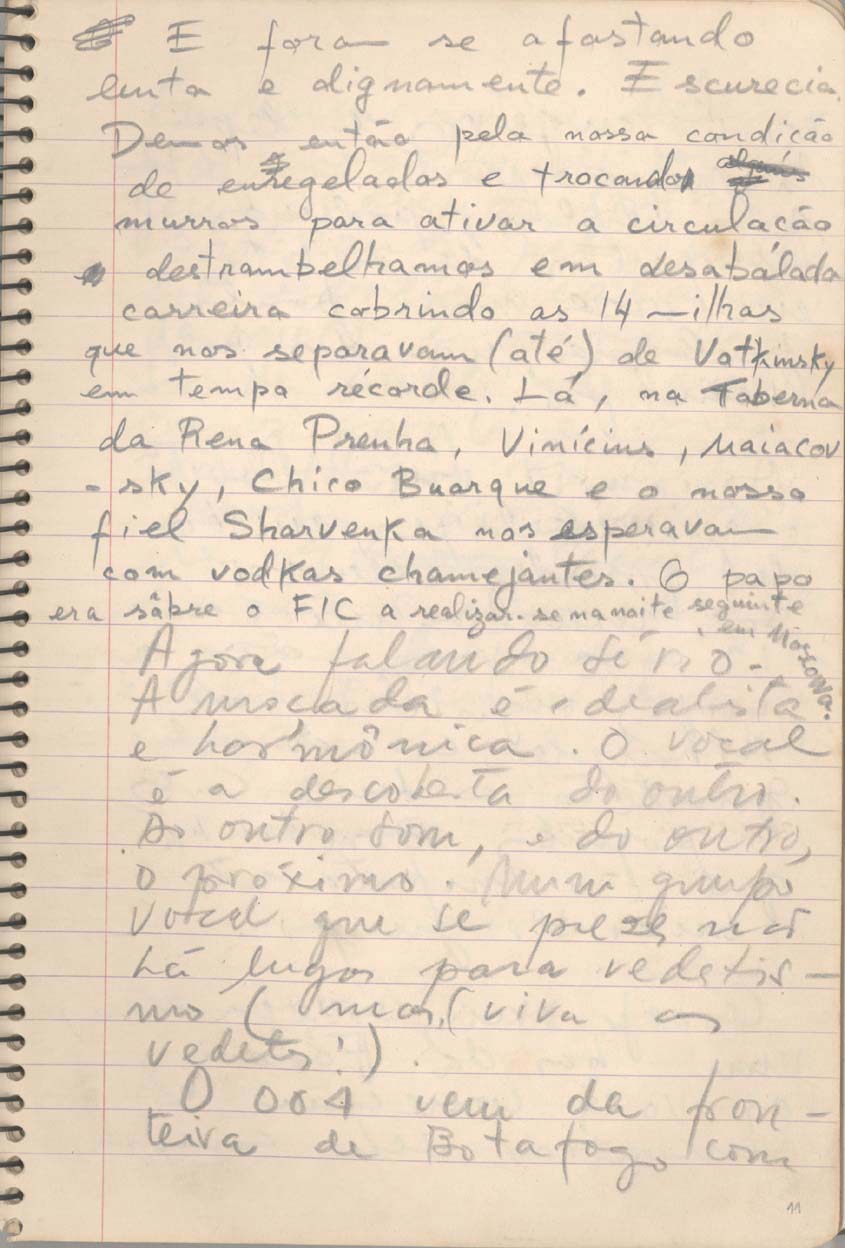 E foram se afastando
lenta e dignamente. Escurecia.
Demos então pela nossa condição
de enregelados e trocando
murros para ativar a circulação
destrambelhamos em desabálada
carreira cobrindo as 14 – ilhas
que nos separavam (até) de Votkinsky
em tempo récorde. Lá, na Taberna
da Rena Prenha, Vinícius, Maiacov
-sky, Chico Buarque e o nosso
fiel Sharvenka nos esperavam
com vodkas chamejantes. O papo
era sôbre o FIC a realizar-se na noite seguinte
em Mossowa.
Agora falando sério -
A moçada é idealista
e harmônica. O vocal
é a descoberta do outro.
Do outro som, e do outro,
o próximo. Num grupo
vocal que se preze não
há lugar para vedetis-
mo (mas, (viva as
vedets!).
O 004 vem da fron-
teira de Botafogo com
11